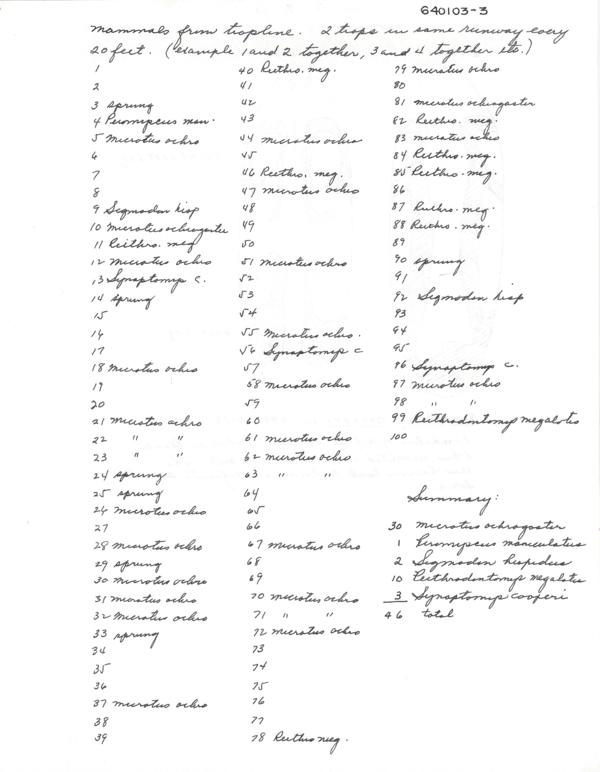 640103-3
Mammals from trapline. 2 traps in same runway every
20 feet. (example 1 and 2 together, 3 and 4 together etc.)
1
2
3 sprung
4 Peromyscus man.
5 Microtus ochro
6
7
8
9 Sigmodon hisp
10 Microtus ochrogaster
11 Reithro. meg
12 Microtus ochro
13 Synaptomys c.
14 sprung
15
16
17
18 Microtus ochro
19
20
21 Microtus ochro
22 " "
23 " "
24 sprung
25 sprung
26 Microtus ochro
27
28 Microtus ochro
29 sprung
30 Microtus ochro
31 Microtus ochro
32 Microtus ochro
33 sprung
34
35
36
37 Microtus ochro
38
39
40 Reithro. meg.
41
42
43
44 Microtus ochro
45
46 Reithro. meg.
47 Microtus ochro
48
49
50
51 Microtus ochro
52
53
54
55 Microtus ochro.
56 Synaptomys c
57
58 Microtus ochro
59
60
61 Microtus ochro
62 Microtus ochro
63 " "
64
65
66
67 Microtus ochro
68
69
70 Microtus ochro
71 " "
72 Microtus ochro
73
74
75
76
77
78 Reithro meg.
79 Microtus ochro
80
81 Microtus ochrogaster
82 Reithro. meg.
83 Microtus ochro
84 Reithro. meg.
85 Reithro. meg.
86
87 Reithro. meg.
88 Reithro. meg.
89
90 sprung
91
92 Sigmodon hisp
93
94
95
96 Synaptomys c.
97 Microtus ochro
98 " "
99 Reithrodontomys megalotis
100
Summary:
30 Microtus ochrogaster
1 Peromyscus maniculatus
2 Sigmodon hispidus
10 Reithrodontomys megalotis
3 Synaptomys cooperi
46 total